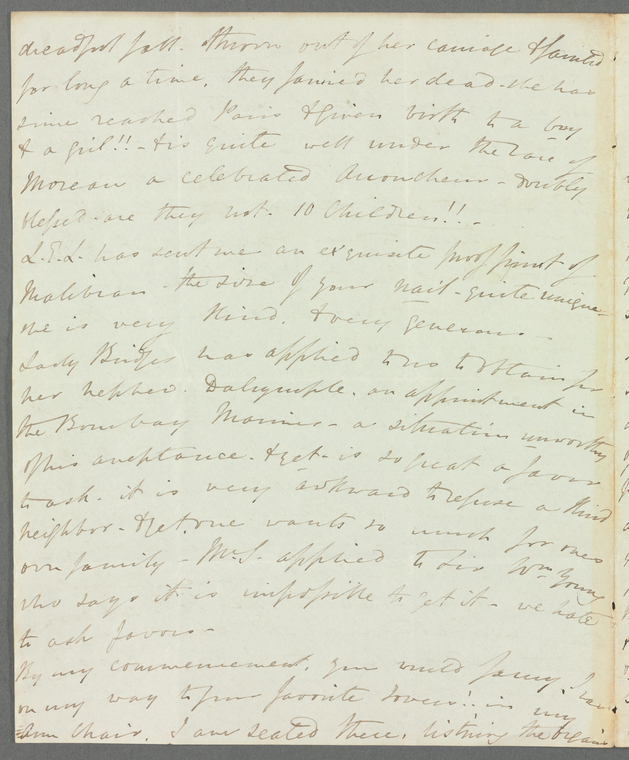 dreadful fall. thrown out of her carriage & fainted
for long a time, they fancied her dead. she has
since reached Paris & given birth to a boy
& a girl!! - & is quite well under the care of
Moreau a celebrated Accoucheur - doubly
blessed - are they not. 10 Children!! -
L.E.L. has sent me an exquisite proof print of
Malibran - the size of your nail - quite unique -
she is very kind, & very generous -
Lady Bridges has applied to us to obtain for
her nephew. Dalrymple. an appointment in
the Bombay Marines - a situation unworthy
of his acceptance - & yet - is so great a favor
to ask. it is very awkward to refuse a kind
neighbor - & yet, one wants so much for ones
own family - Mr. S. applied to Sir Wm Young
who says it is impossible to get it - we hate
to ask favors -
By my commencement, you would fancy, I was
on my way to your favorite Town!! in my
Arm Chair. I am seated there, listning the